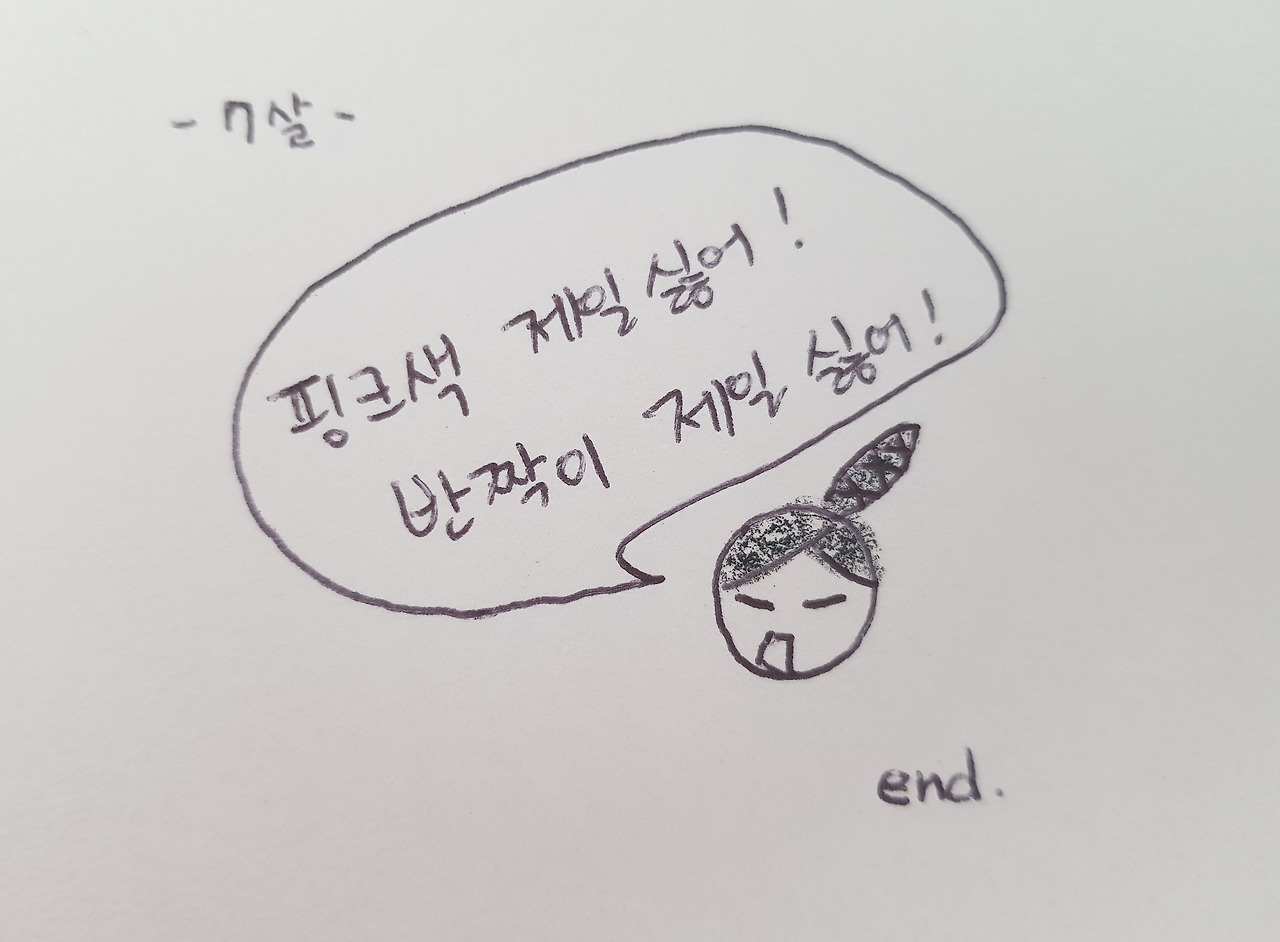 - 7살 -
핑크색 제일 싫어!
반짝이 제일 싫어!
end.